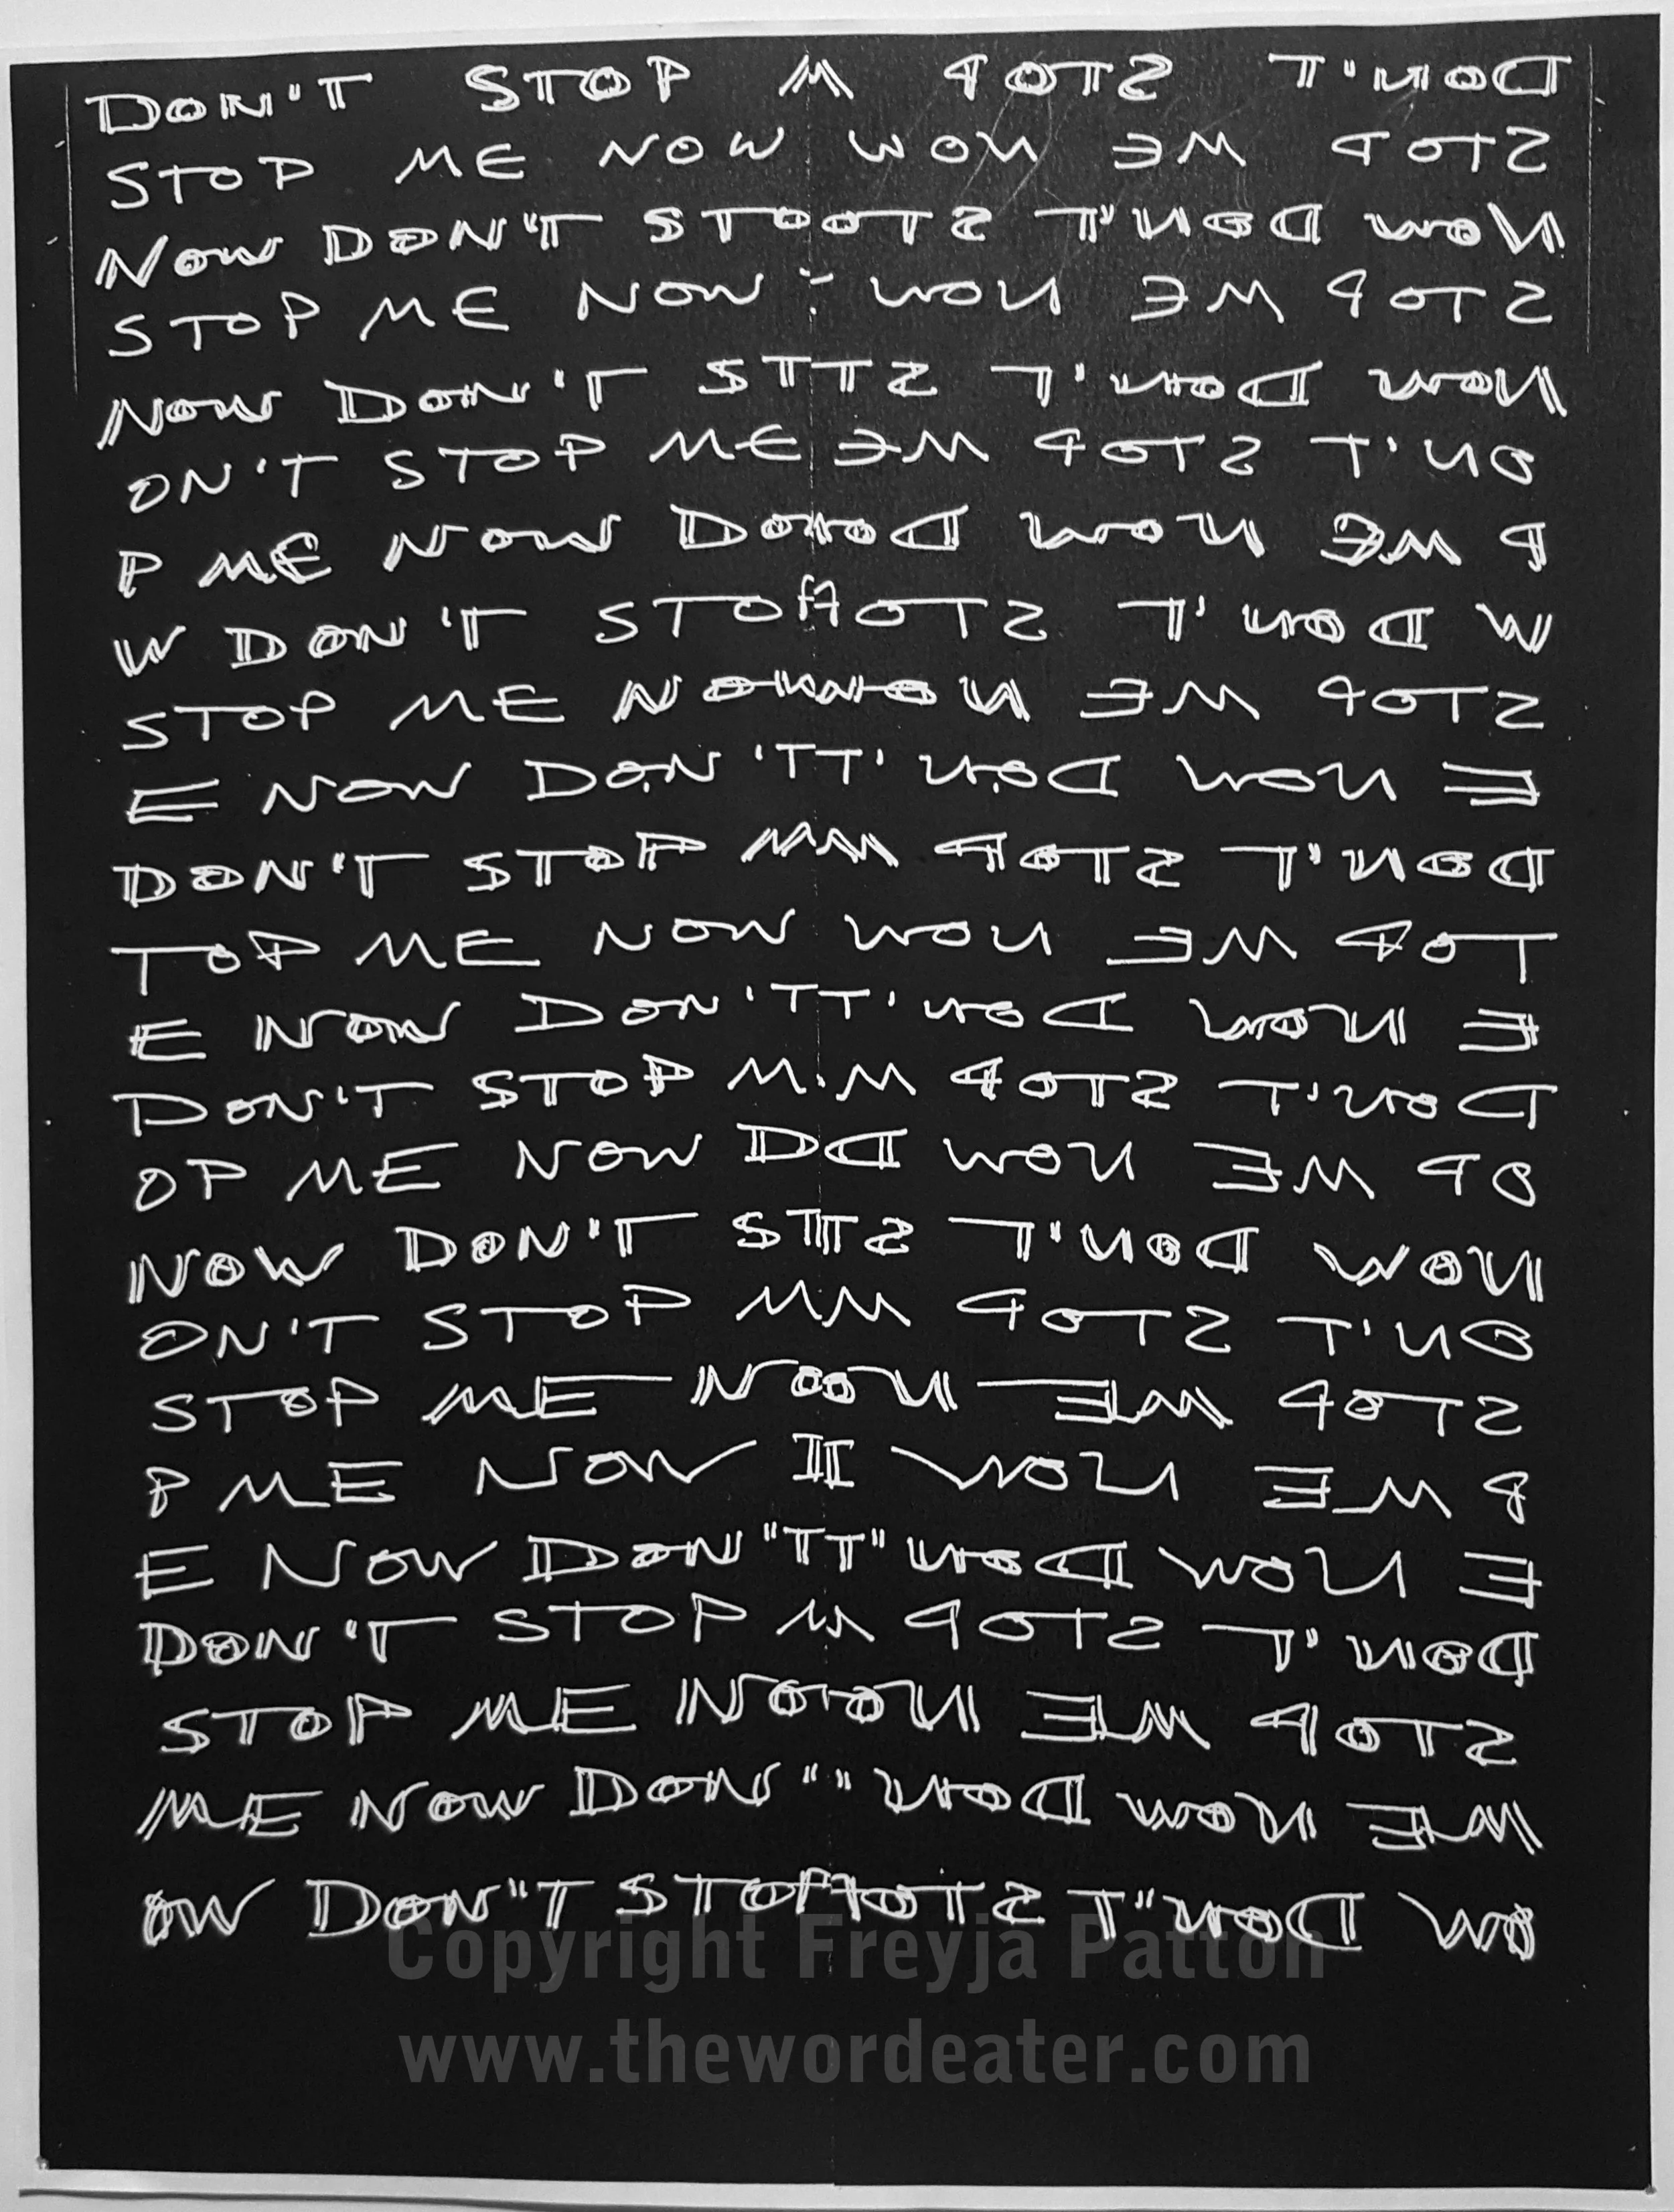 DON'T STOP M POTS T'NOD
STOP ME NOW WON EM POTS
NOW DON'T STOOTS T'NOD WON
STOP ME NOW WON EM POTS
NOW DON'T STTS T'NOD WON
ON'T STOP ME EM POTS T'NO
P ME NOW DONOD WON EM P
W DON'T STOPPOTS T'NOD W
STOP ME NOWON EM POTS
E NOW DON'TT'NOD WON E
DON'T STOP MM POTS T'NOD
TOP ME NOW WON EM POT
E NOW DON'TT'NOD WON E
DON'T STOP M M POTS T'NOD
OP ME NOW DD WON EM PO
NOW DON'T STTS T'NOD WON
ON'T STOP MM POTS T'NO
STOP ME NOON EM POTS
P ME NOW II WON EM P
E NOW DON"TT"NOD WON E
DON'T STOP M POTS T'NOD
STOP ME NOON EM POTS
ME NOW DON""NOD WON EM
OW DON"T STOPPOTS T"NOD WO
Copyright Freyja Patton
www.thewordeater.com